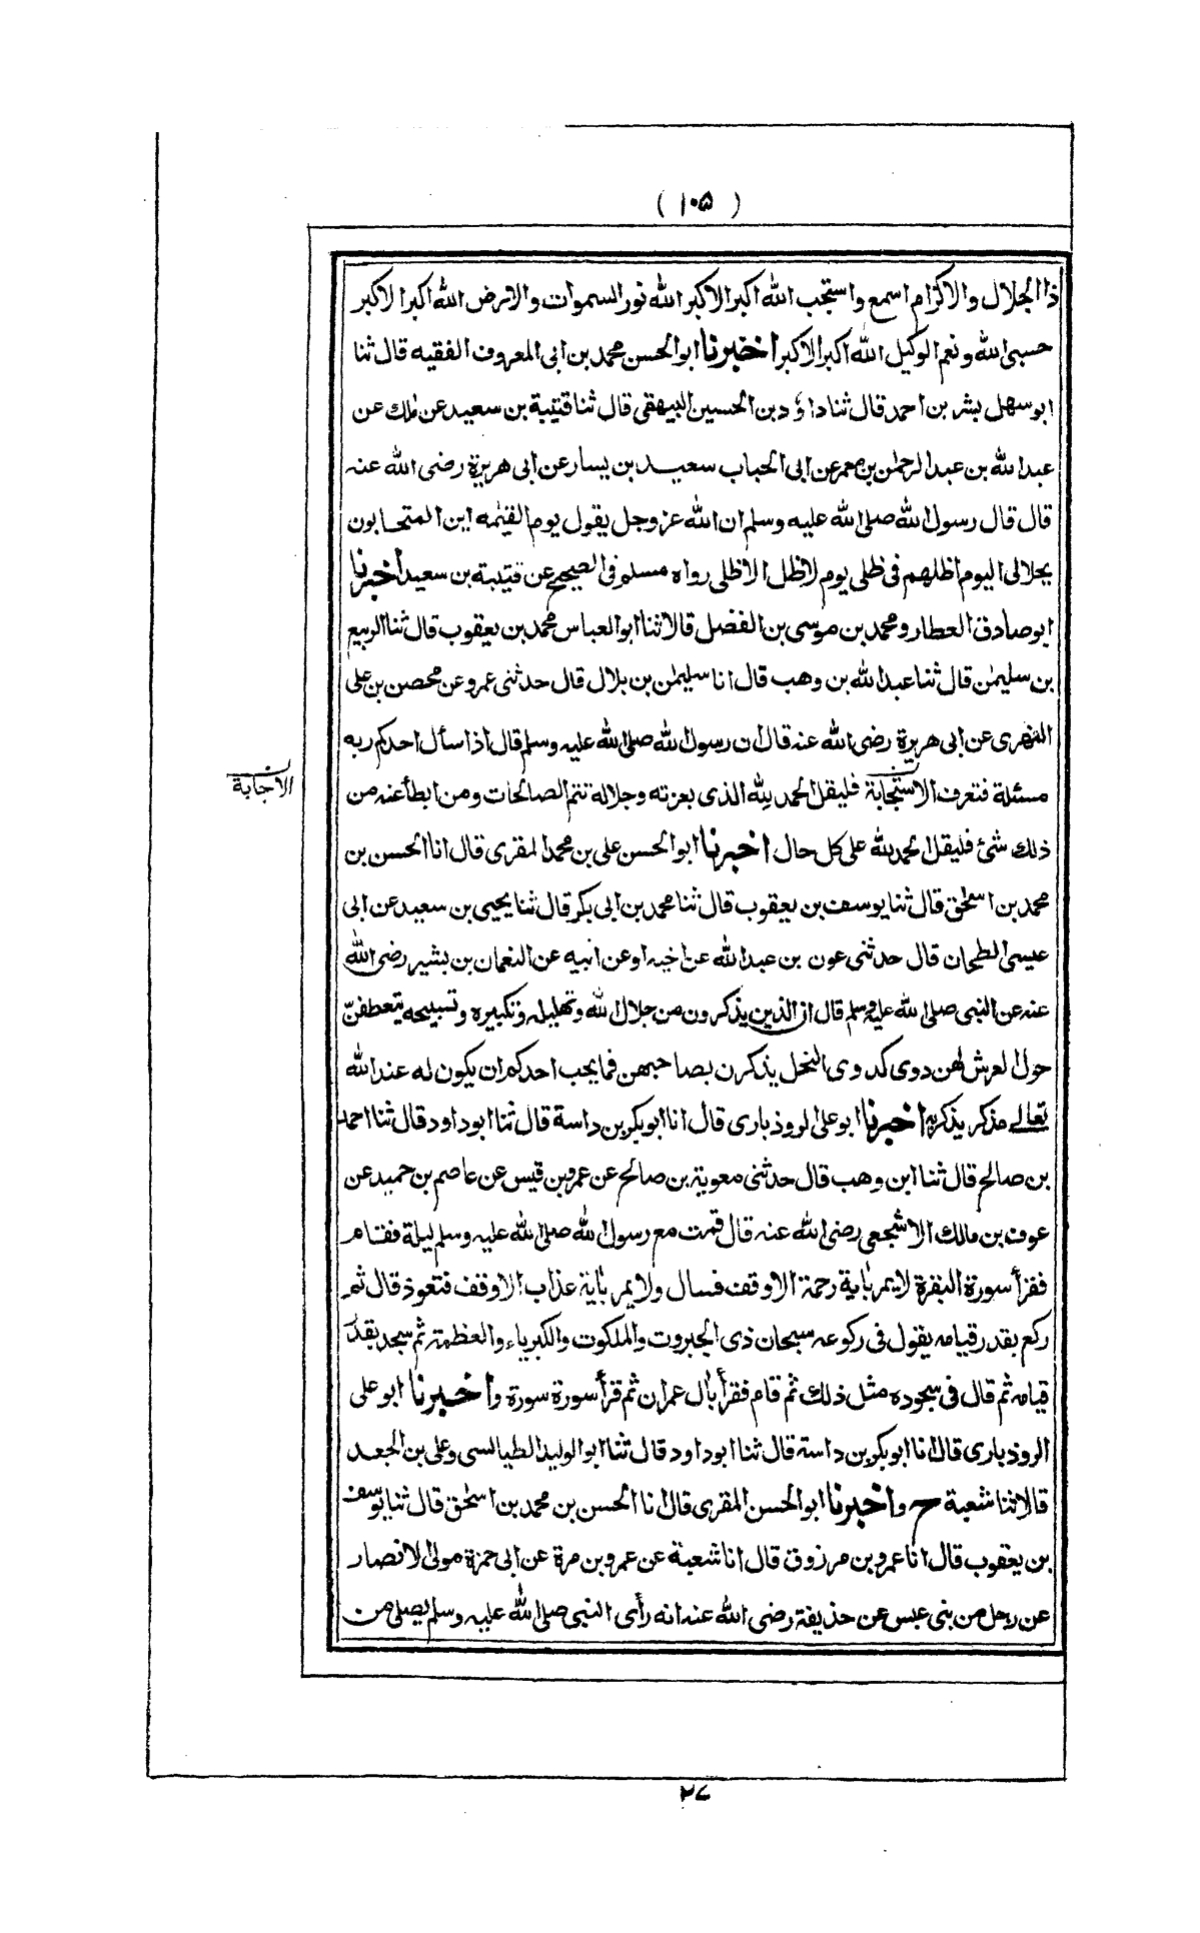 (١٠۵)
ذا الجلال والاكرام اسمع واستجب الله اكبر الاكبر الله نور السموات والارض الله اكبر الاكبر
حسبى الله ونعم الوكيل الله اكبر الاكبر اخبرنا ابو الحسن محمد بن ابى المعروف الفقيه قال ثنا
ابو سهل بشر بن احمد قال ثنا داؤد بن الحسين البيهقى قال ثنا قتيبة بن سعيد عن مٰلك عن
عبد الله بن عبد الرحمٰن بن معمر عن ابى الحباب سعيد بن يسار عن ابى هريرة رضى الله عنه
قال قال رسول الله صلى الله عليه وسلم ان الله عز وجل يقول يوم القيٰمه اين المتحابون
بجلالى اليوم اظلهم فى ظلى يوم لا ظل الا ظلى رواه مسلم فى الصحيح عن قتيبة بن سعيد اخبرنا
ابو صادق العطار ومحمد بن موسى بن الفضل قالا ثنا ابو العباس محمد بن يعقوب قال ثنا الربيع
بن سليمٰن قال ثنا عبد الله بن وهب قال انا سليمٰن بن بلال قال حدثنى عمرو عن محصن بن على
الفهرى عن ابى هريرة رضى الله عنه قال ان رسول الله صلى الله عليه وسلم قال اذا سأل احدكم ربه
مسئلة فتعرف الاستجابة فليقل الحمد لله الذى بعزته وجلاله تتم الصالحات ومن ابطأ عنه من
الاجابة
ذلك شئ فليقل الحمد لله على كل حال اخبرنا ابو الحسن على بن محمد المقرى قال انا الحسن بن
محمد بن اسحٰق قال ثنا يوسف بن يعقوب قال ثنا محمد بن ابى بكر قال ثنا يحيى بن سعيد عن ابى
عيسى الطحان قال حدثنى عون بن عبد الله عن اخيه او عن ابيه عن النعمان بن بشير رضى الله
عنه عن النبى صلى الله عليه وسلم قال ان الذين يذكرون من جلال الله وتهليله وتكبيره وتسبيحه يتعطفن
حول العرش لهن دوى كدوى النحل يذكرن بصاحبهن فما يحب احدكم ان يكون له عند الله
تعالى مذكر يذكر به اخبرنا ابو على الروذبارى قال انا ابو بكر بن داسة قال ثنا ابو داود قال ثنا احمد
بن صالح قال ثنا ابن وهب قال حدثنى معوية بن صالح عن عمرو بن قيس عن عاصم بن حميد عن
عوف بن مالك الاشجعى رضى الله عنه قال قمت مع رسول الله صلى الله عليه وسلم ليلة فقام
فقرأ سورة البقرة لا يمر باٰية رحمة الا وقف فسال ولا يمر باٰية عذاب الا وقف فتعوذ قال ثم
ركع بقدر قيامه يقول فى ركوعه سبحان ذى الجبروت والملكوت والكبرياء والعظمة ثم سجد بقدر
قيامه ثم قال فى سجوده مثل ذلك ثم قام فقرأ بأل عمران ثم قرأ سورة سورة واخبرنا ابو على
الروذبارى قال انا ابو بكر بن داسة قال ثنا ابو داود قال ثنا ابو الوليد الطيالسى وعلى بن الجعد
قالا ثنا شعبة ح واخبرنا ابو الحسن المقرى قال انا الحسن بن محمد بن اسحٰق قال ثنا يوسف
بن يعقوب قال انا عمرو بن مرزوق قال انا شعبة عن عمرو بن مرة عن ابى حمزة مولى الانصار
عن رجل من بنى عبس عن حذيفة رضى الله عنه انه رأى النبى صلى الله عليه وسلم يصلى من
٢٧